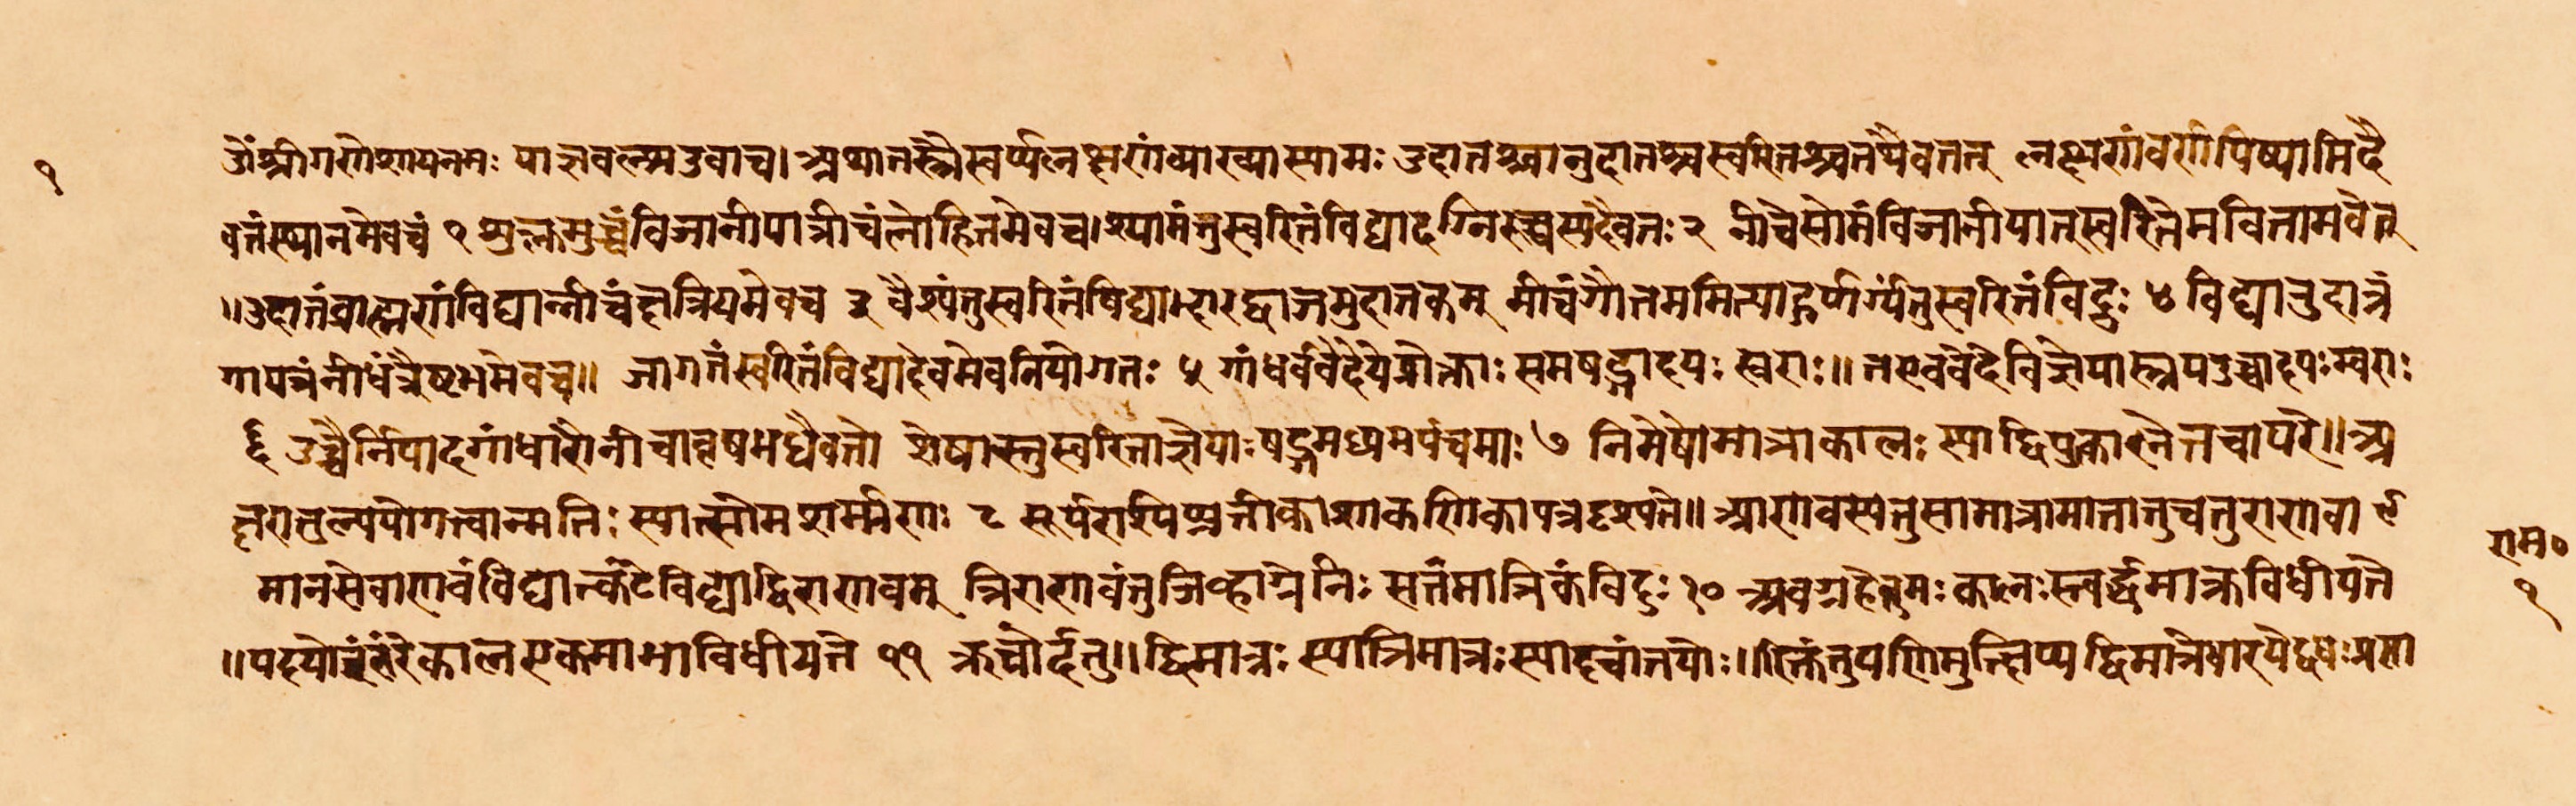 १
ॐ श्रीगणेशायनमः याज्ञवल्क्यउवाच। अथातस्त्रैस्वर्य्यलक्षणंव्याख्यास्यामः उदात्तश्चानुदात्तश्चस्वरितश्चतथैवतत् लक्षणंवर्णयिष्यामिदै
वतंस्थानमेवचं १ शुक्लमुच्चंविजानीयान्नीचंलोहितमेवच। श्यामंतुस्वरितंविद्यादग्निरुच्चस्यदैवतः २ नीचेसोमंविजानीयात्स्वरितेसवितामवेत्
॥उदात्तंब्राह्मणंविद्यान्नीचंक्षत्रियमेवच ३ वैश्यंतुस्वरितंविद्याभारद्वाजमुदात्तकम् नीचंगौतममित्याहुर्गार्ग्यंतुस्वरितंविदुः ४ विद्यादुदात्तं
गायत्रंनीचंत्रैष्टुभमेवच॥ जागतंस्वरितंविद्यादेवमेवनियोगतः ५ गांधर्ववेदेयेप्रोक्ताः सप्तषड्जादयः स्वराः॥ तएववेदेविज्ञेयास्त्रयउच्चादयःस्वराः
६ उच्चैर्निषादगांधारौनीचावृषभधैवतो शेषास्तुस्वरिताज्ञेयाःषड्जमध्यमपंचमाः ७ निमेषोमात्राकालः स्याद्विद्युत्कालेतिचापरे॥अ
क्षरातुल्ययोगत्वान्मतिः स्यात्सोमशर्म्मणः ८ सूर्यरश्मिप्रतीकाशाकणिकायत्रदृश्यते॥ आणवस्यतुसामात्रामात्रातुचतुराणवा ९
मानसेचाणवंविद्यात्कंठेविद्याद्विराणवम् त्रिराणवंतुजिव्हाग्रेनिः सृतंमात्रिकंविदुः १० अवग्रहेतुयः कालःस्त्वर्द्धमात्राविधीयते
॥पदयोरंतरेकालएकमात्राविधीयते ११ ऋचोर्द्धेतु॥द्विमात्रः स्यात्रिमात्रःस्यादृचांतयोः॥रिक्तंतुपाणिमुत्क्षिप्यद्विमात्रेधारयेद्बुधः
राम०
१